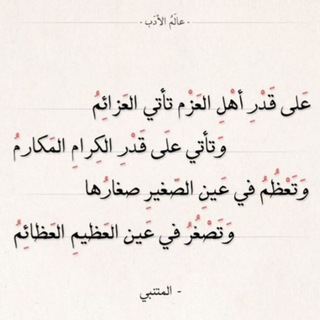 - عالَمُ الأدَب -
عَلى قَدْرِ أهْلِ العَزْم تأتي العَزائِمُ
وَتأتي علَى قَدْرِ الكِرامِ المَكارمُ
وَتَعْظُمُ في عَينِ الصّغيرِ صغارُها
وَتَصْغُرُ في عَين العَظيمِ العَظائِمُ
- المتنبي